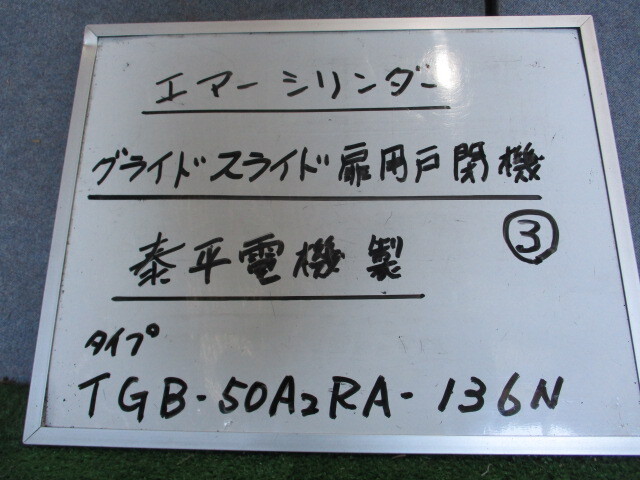 エマーシリンダー
グライドスライド扉用戸閉機
③
泰平電機製
タイプ
TGB-50A2RA-136N